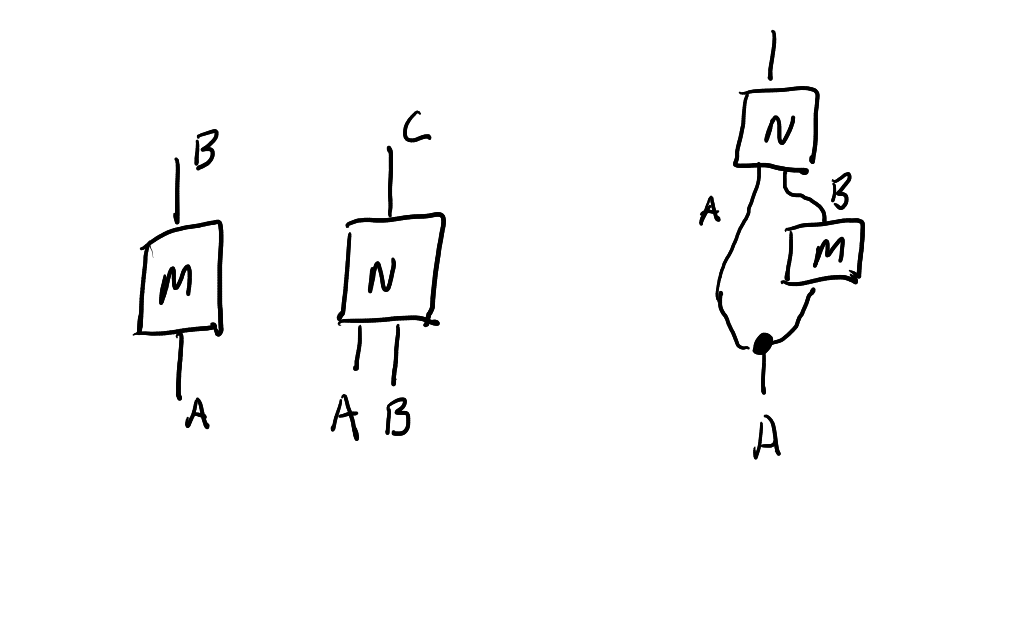 B
M
A
C
N
A B
N
A
B
M
A